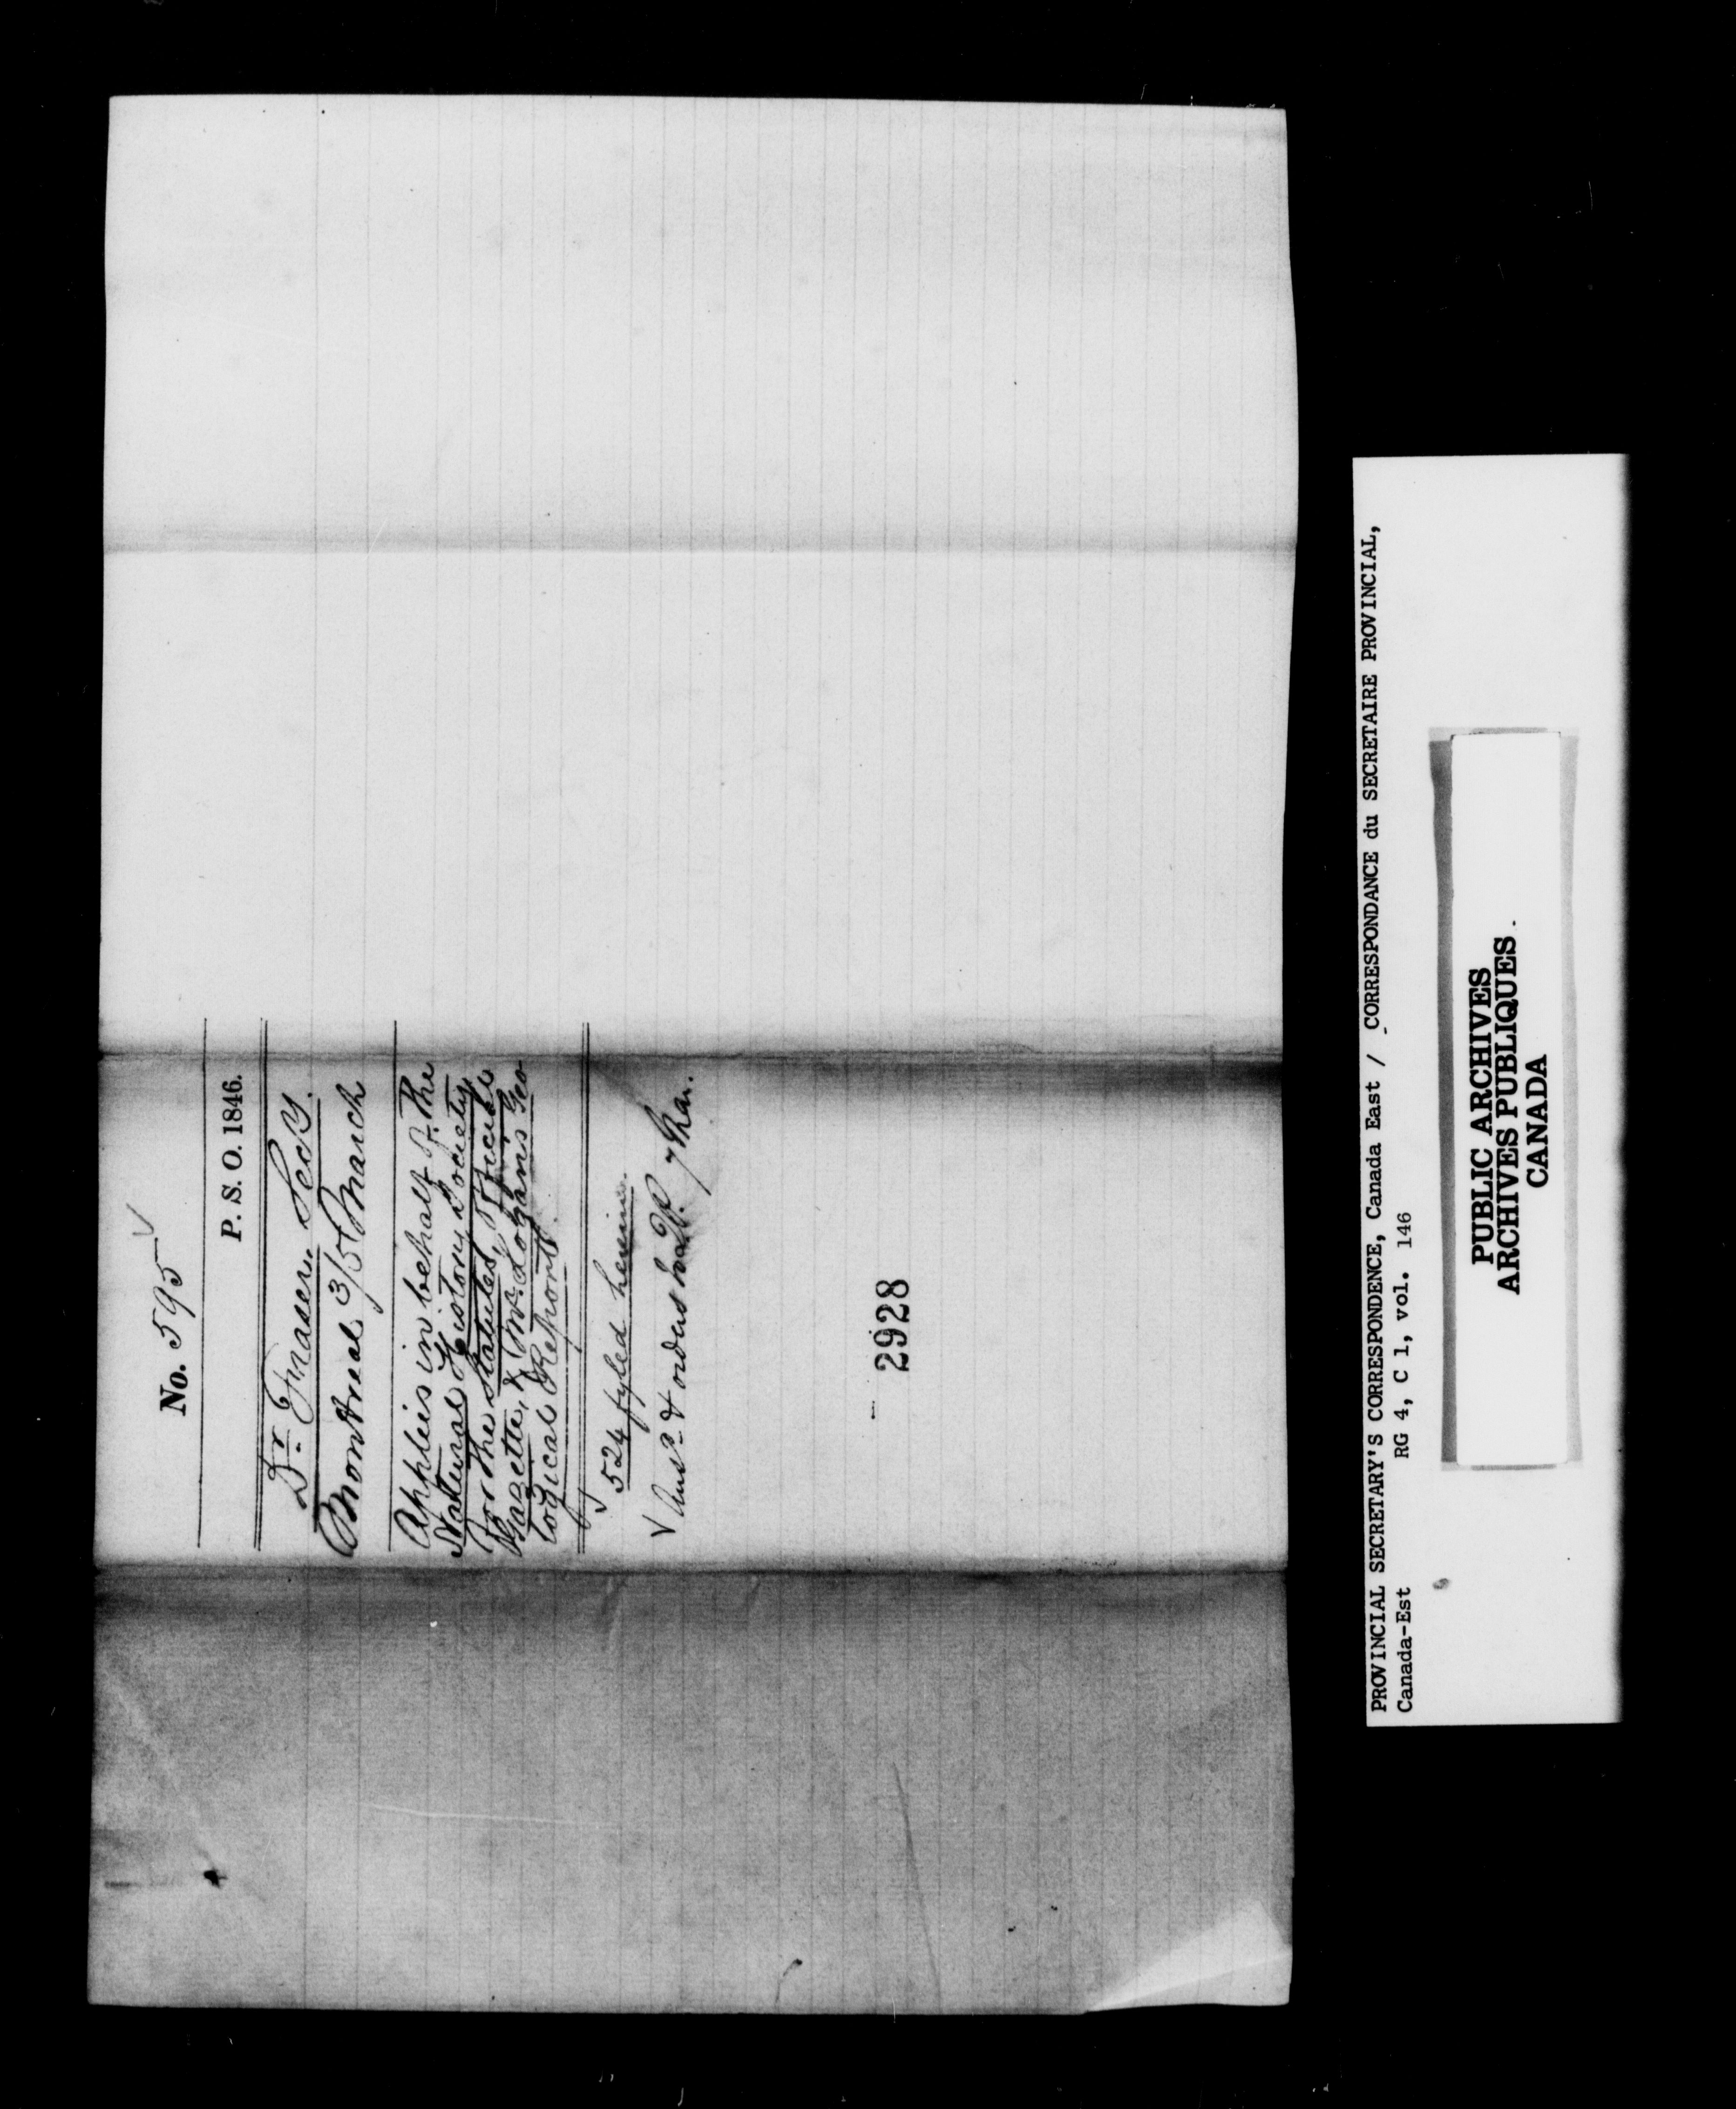 No. 595
P. S. O. 1846.
Dr. Fraser, Secy.
Montreal 3/5 March
Applies in behalf of the
Natural History Society
for the Statutes, Official
Gazette, & Mr. Logan's Geo-
logical Report.
524 fyled herein.
Ansd. & orders 7 Mar.
2928
PROVINCIAL SECRETARY'S CORRESPONDENCE, Canada East / CORRESPONDANCE du SECRETAIRE PROVINCIAL,
Canada-Est RG 4, C 1, vol. 146
PUBLIC ARCHIVES
ARCHIVES PUBLIQUES
CANADA